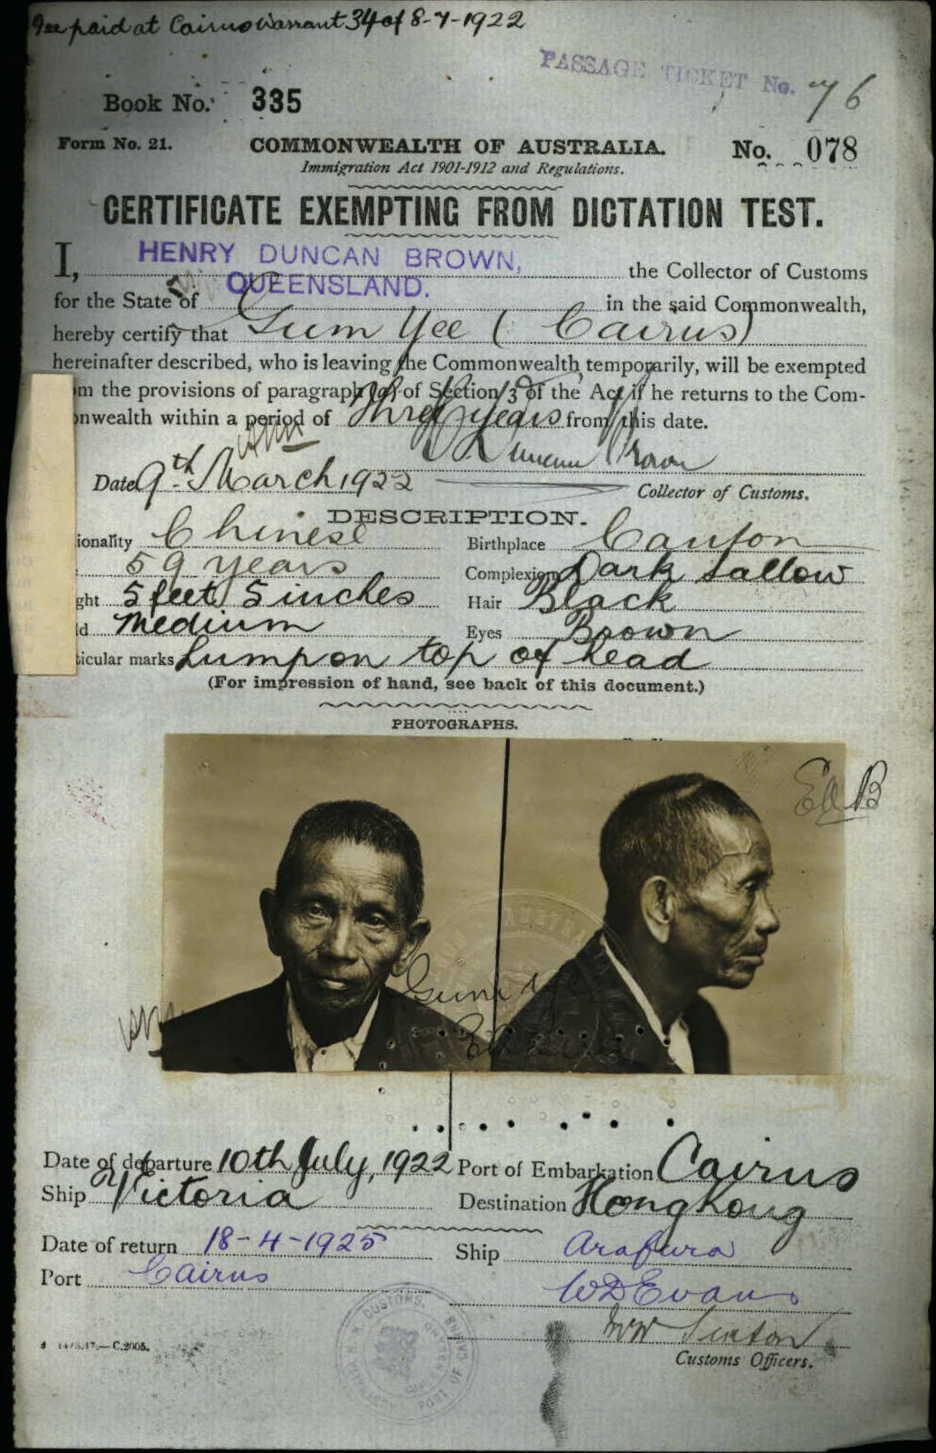 Fee paid at Cairns Warrant 34 of 8-7-1922
PASSAGE TICKET No. 76
Book No. 335
Form No. 21. COMMONWEALTH OF AUSTRALIA. No. 078
Immigration Act 1901-1912 and Regulations.
CERTIFICATE EXEMPTING FROM DICTATION TEST.
I, HENRY DUNCAN BROWN, the Collector of Customs
for the State of QUEENSLAND. in the said Commonwealth,
hereby certify that Gum Yee (Cairns)
hereinafter described, who is leaving the Commonwealth temporarily, will be exempted
m the provisions of paragraph (a) of Section 3 of the Act if he returns to the Com-
nwealth within a period of Three years from this date.
H Duncan Brown
Date 9th March 1922 Collector of Customs.
DESCRIPTION.
ionality Chinese Birthplace Canton
59 years Complexion Dark Sallow
ght 5 feet 5 inches Hair Black
d Medium Eyes Brown
ticular marks Lump on top of head
(For impression of hand, see back of this document.)
PHOTOGRAPHS.
Gum Yee
Cairns
Date of departure 10th July, 1922 Port of Embarkation Cairns
Ship Victoria Destination HongKong
Date of return 18-4-1925 Ship Arafura
Port Cairns WD Evans
Customs Officers.
C.2005.
CUSTOMS
PORT OF CAIRNS